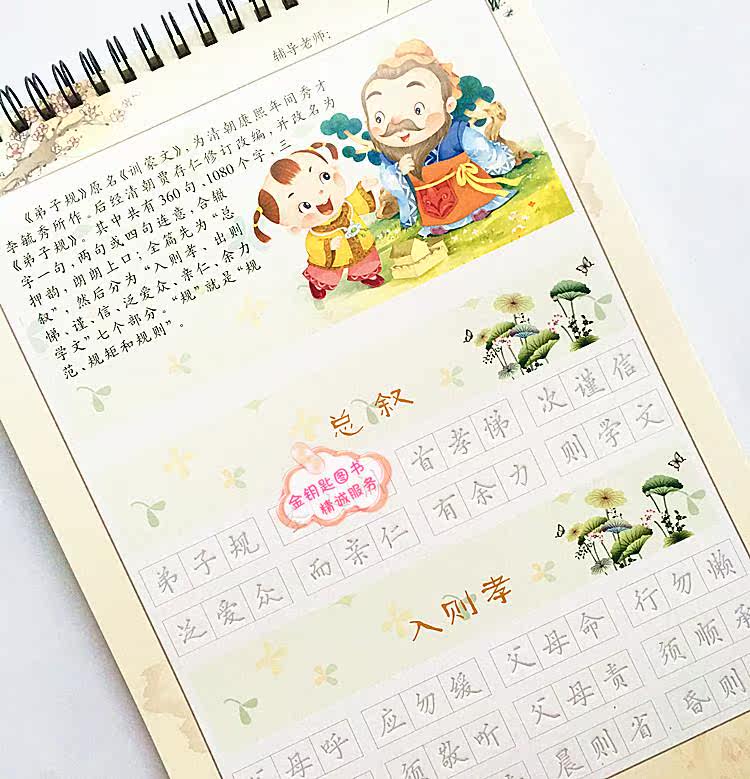 辅导老师:
《弟子规》原名《训蒙文》,为清朝康熙年间秀才
李毓秀所作。后经清朝贾存仁修订改编,并改名为
《弟子规》。其中共有360句、1080个字,三
字一句,两句或四句连意,合辙
押韵,朗朗上口;全篇先为“总
叙”,然后分为“入则孝、出则
悌、谨、信、泛爱众、亲仁、余力
学文”七个部分。“规”就是“规
范、规矩和规则”。
总 叙
弟子规 首孝悌 次谨信
泛爱众 而亲仁 有余力 则学文
金钥匙图书
精诚服务
入则孝
父母呼 应勿缓 父母命 行勿懒
须敬听 父母责 须顺承
晨则省 昏则